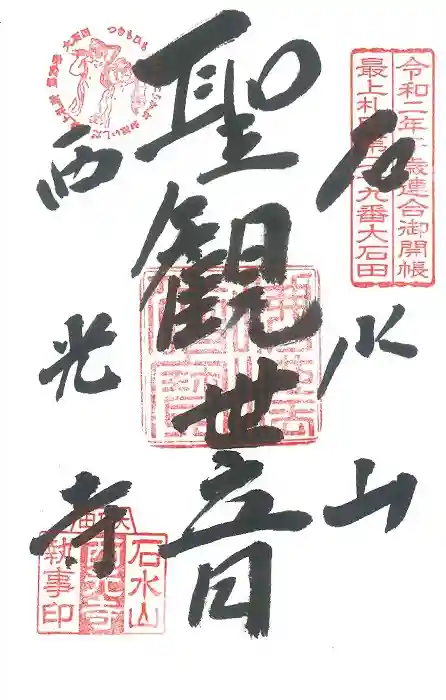 令和二年子歳連合御開帳
最上札所第二十九番大石田
石水山
聖観世音
西光寺
大石田
石水山
西光寺
執事印